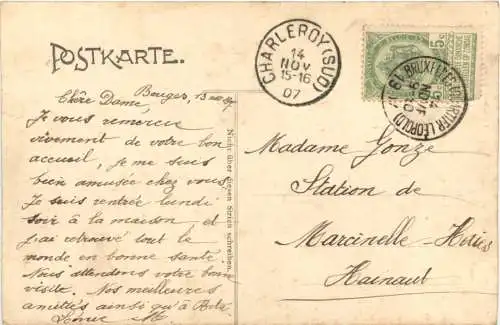 POSTKARTE.
CHARLEROY (SUD)
14
NOV
15-16
07
5c
BRUXELLES (QUARTIER LÉOPOLD)
Bouges, 13
Chère Dame,
Je vous remercie
vivement de votre bon
accueil, je me suis
bien amusée chez vous.
Je suis rentrée lundi
soir à la maison et
j'ai retrouvé tout le
monde en bonne santé.
Nous attendons votre bonne
visite. Nos meilleures
amitiés ainsi qu'à
Nicht über diesen Strich schreiben.
Madame Gonze
Station de
Marcinelle-Haies
Hainaut